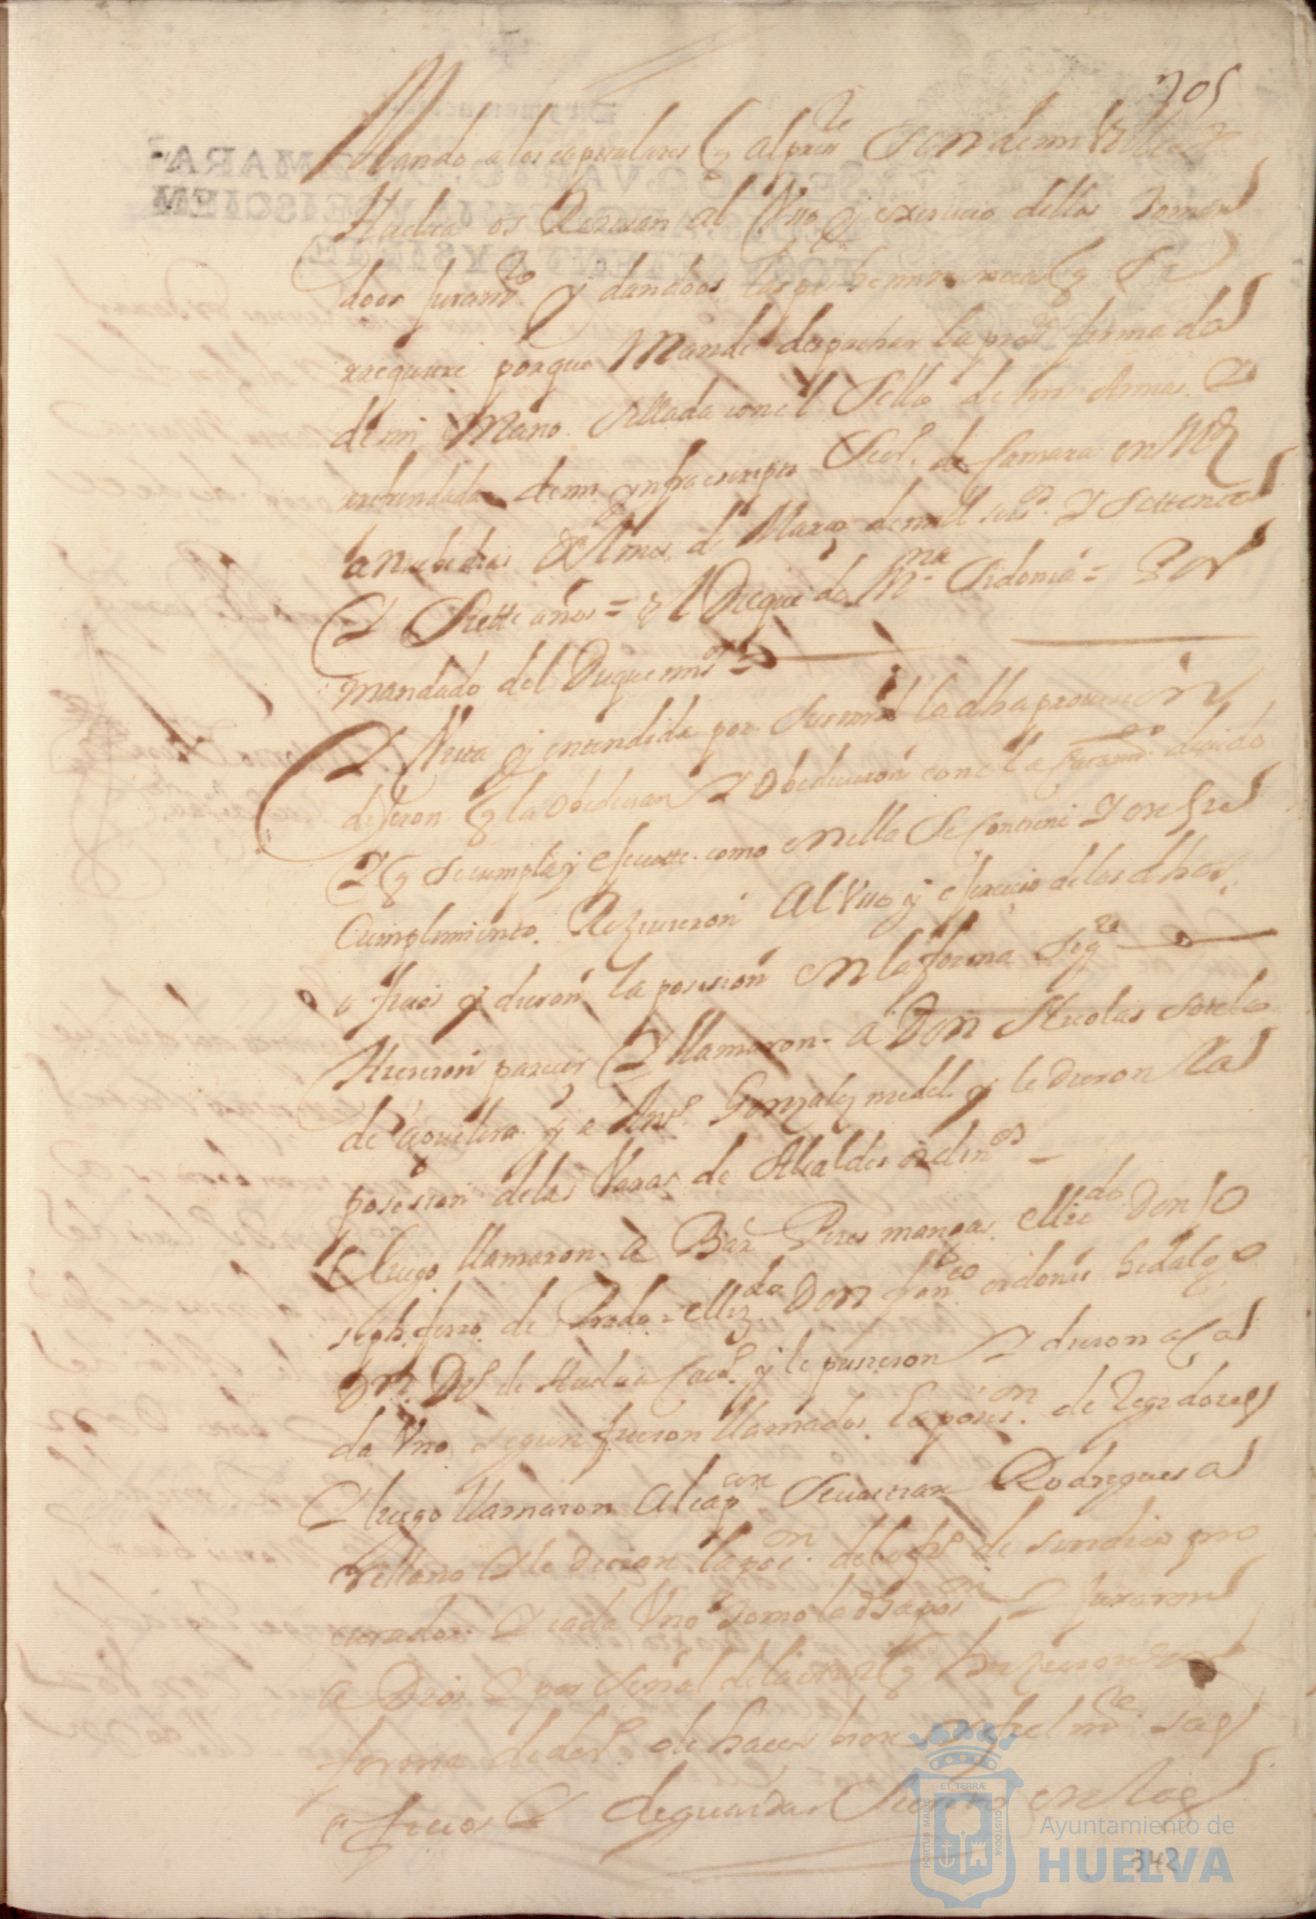 305
Mando a los capitulares q al preste son de mi Villa de
Huelva os Reziuan al Vso y exercicio dellos Toman
doos Juramto Y dandoos las preheminencias q Se
rrequiere porque Mande despachar la preste firmada
de mi Mano Sellada con el Sello de mis Armas Y
refrendada de mi ynfraescripto Secro de Camara en Md
a nuebe dias del mes de Março de mill seisos Y Settenta
Y Siette años = El Duque de Mna Sidonia = Por
mandado del Duque mi sr =
Y Vista y entendida por Sus mrds la dha prouision
dixeron q la obedecian Y Obedecieron con el acatamto deuido
Y q se cumpla y executte como en ella Se Contiene Y en Su
Cumplimiento Reziuieron Al Vso y exercicio de los dhos
oficios y dieron la posesion en la forma Sigte
Hicieron parecer Y llamaron a Don Nicolas Sotelo
de aguilera y a Anto Gonzalez medel y le dieron la
posesion de las Varas de Alcaldes ordinos
Y luego llamaron a Bar Peres mangas el lizdo Don Jo
seph ferro de Prado el lizdo Don Franco ordoñes hidalgo
Dn Do de Huelva y le pusieron Y dieron a Ca
da Vno segun fueron llamados la posecion de Regidores
Y luego llamaron Al capan Seuastian Rodrigues a
rellano Y le dieron la poson del ofo de sindico pro
curador Y cada Vno tomo la dha poson Y juraron
a Dios Y por Señal de la cruz q hizieron en
forma de dero de hacer bien Y fielmte sus
oficios Y de guardar Secreto en los
ET TERRÆ
PORTUS MARIS
CUSTODIA
Ayuntamiento de
HUELVA
342